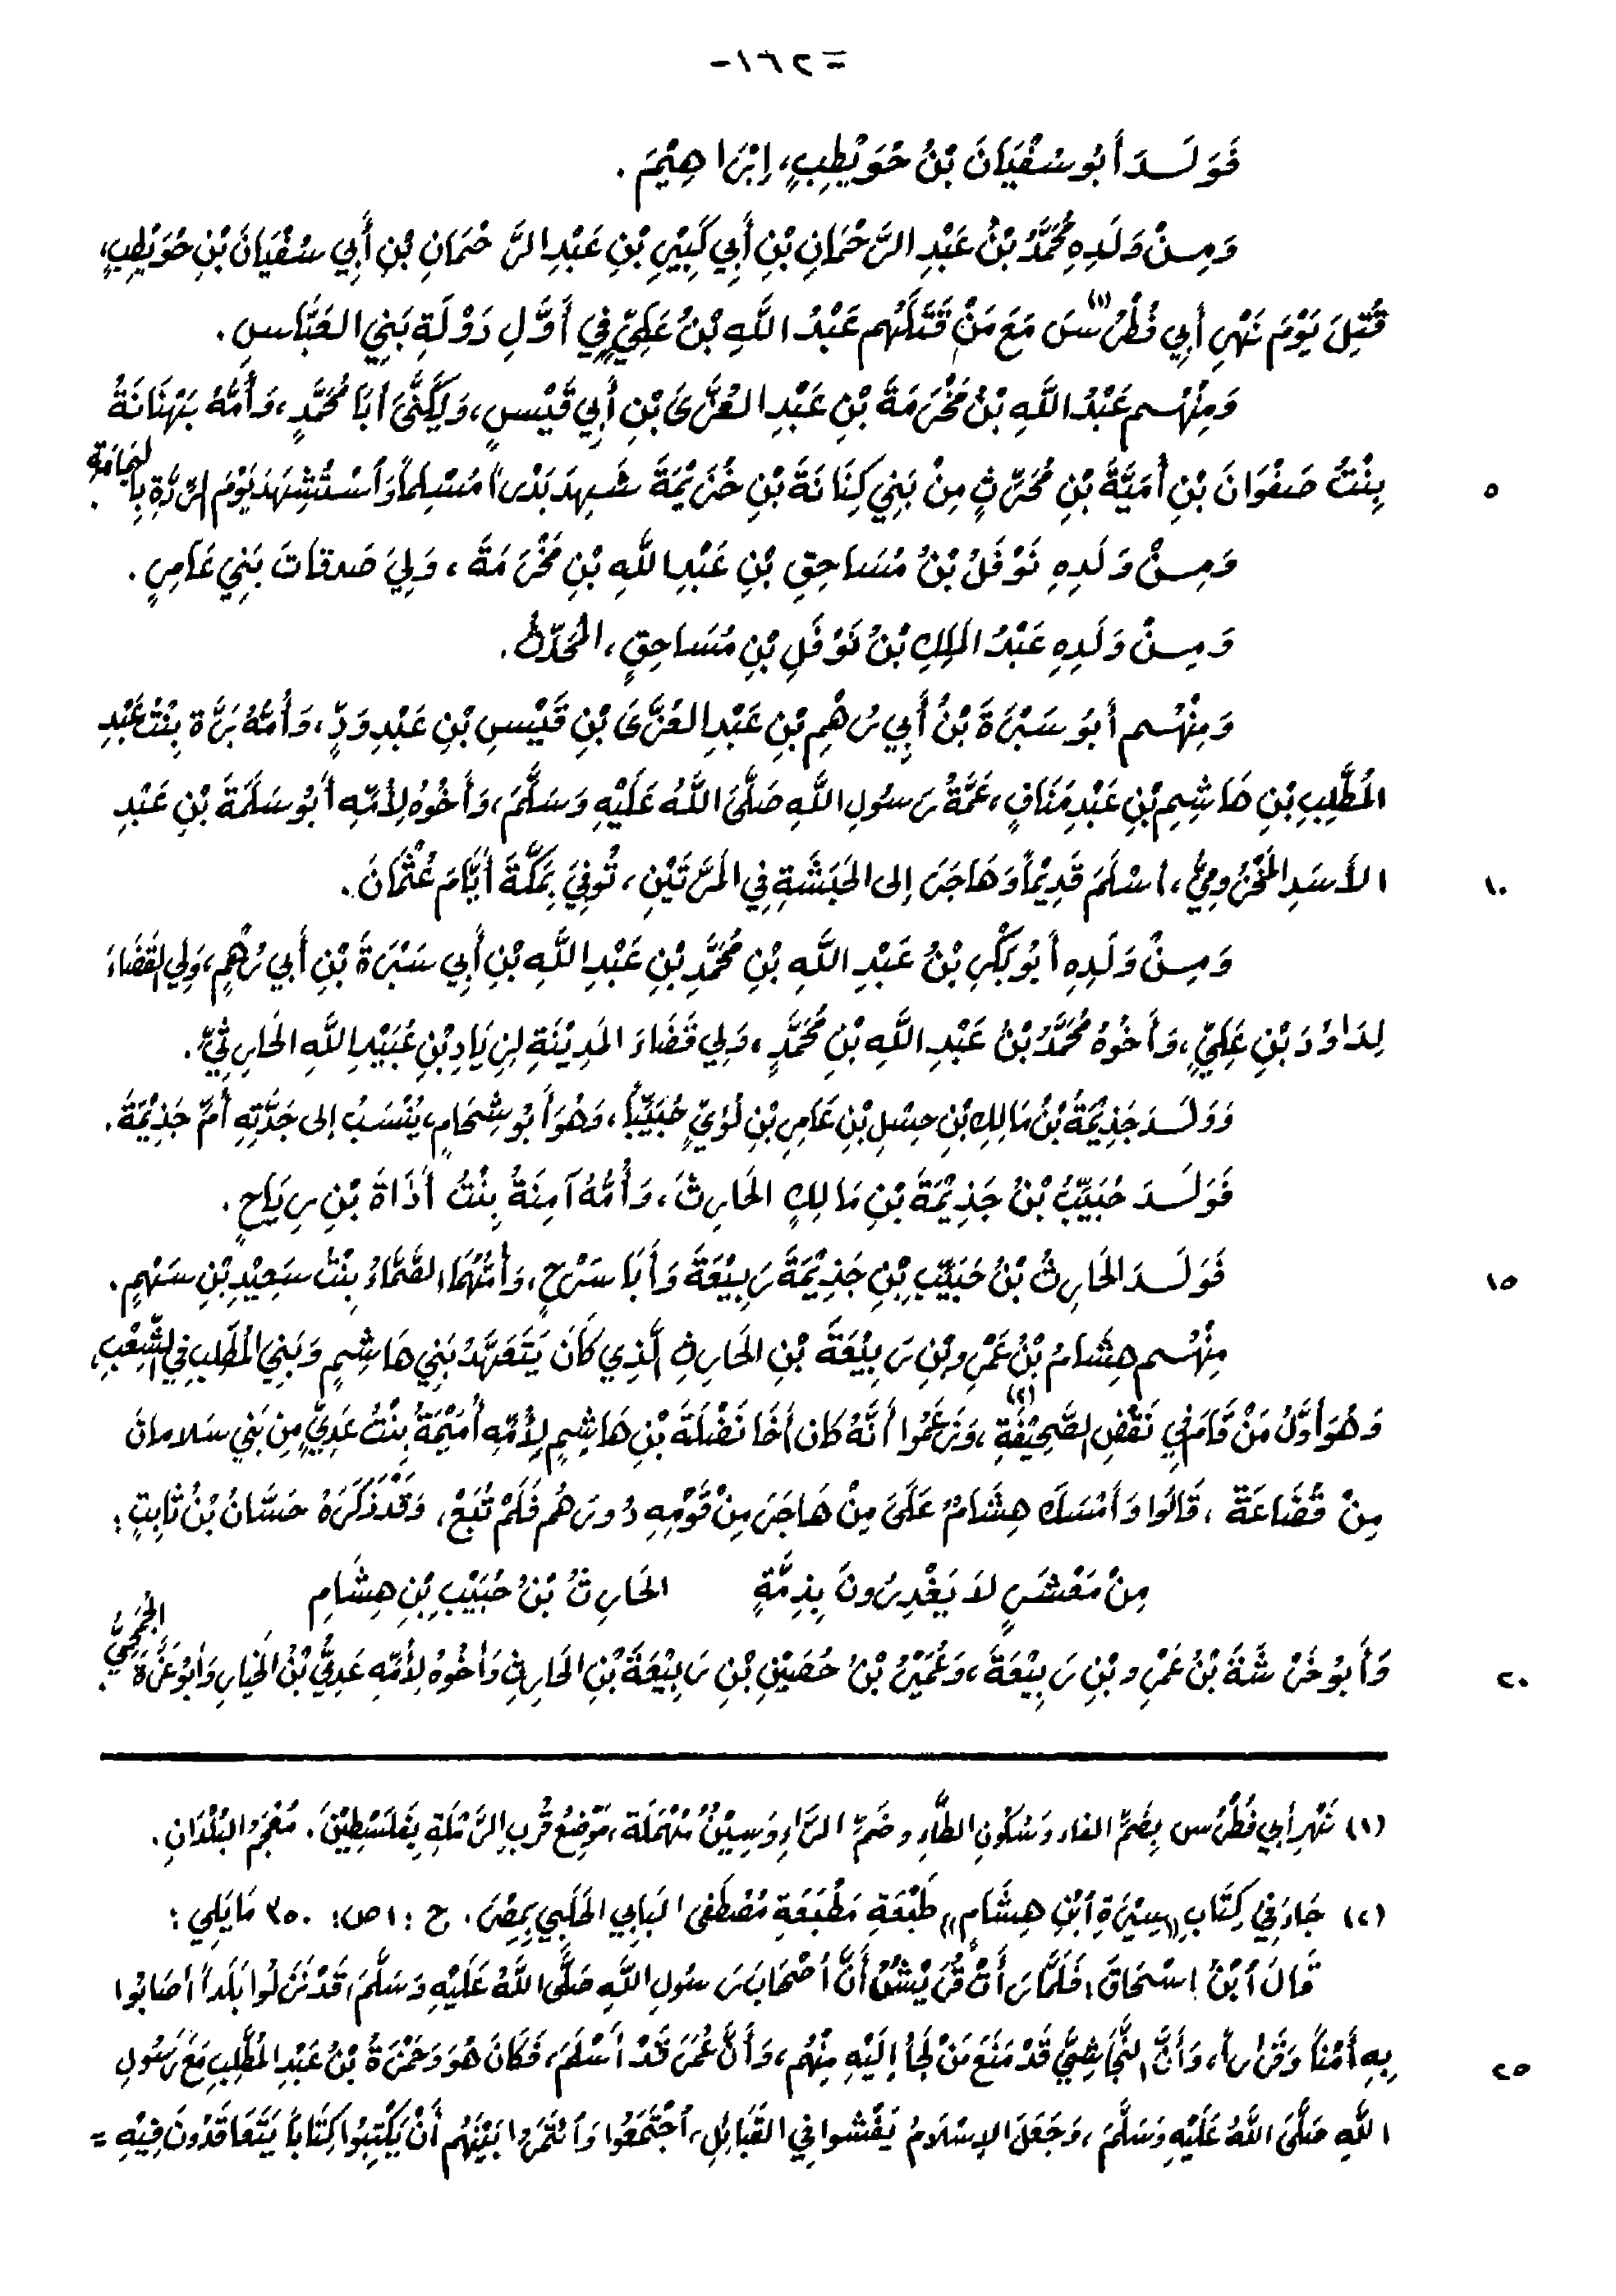 -٢٦١-
فَوَلَدَ أَبُو سُفْيَانَ بْنُ حُوَيْطِبٍ، إِبْرَاهِيْمَ .
وَمِنْ وَلَدِهِ مُحَمَّدُ بْنُ عَبْدِ الرَّحْمَانِ بْنِ أَبِي كَبِيْرِ بْنِ عَبْدِ الرَّحْمَانِ بْنِ أَبِي سُفْيَانَ بْنِ حُوَيْطِبٍ،
قُتِلَ يَوْمَ نَهْرِ أَبِي فُطْرُسَ (١) مَعَ مَنْ قَتَلَهُم عَبْدُ اللَّهِ بْنُ عَلِيٍّ فِي أَوَّلِ دَوْلَةِ بَنِي العَبَّاسِ .
وَمِنْهُم عَبْدُ اللَّهِ بْنُ مَخْرَمَةَ بْنِ عَبْدِ العُزَّى بْنِ أَبِي قَيْسٍ، وَيُكَنَّى أَبَا مُحَمَّدٍ، وَأُمُّهُ بَهْنَانَةُ
٥ بِنْتُ صَفْوَانَ بْنِ أُمَيَّةَ بْنِ مُحَرِّثٍ مِنْ بَنِي كِنَانَةَ بْنِ خُزَيْمَةَ شَهِدَ بَدْراً مُسْلِماً وَاُسْتُشْهِدَ يَوْمَ الرِّدَّةِ بِاليَمَامَةِ .
وَمِنْ وَلَدِهِ نَوْفَلُ بْنُ مُسَاحِقِ بْنِ عَبْدِ اللَّهِ بْنِ مَخْرَمَةَ ، وَلِيَ صَدقَاتَ بَنِي عَامِرٍ .
وَمِنْ وَلَدِهِ عَبْدُ المَلِكِ بْنُ نَوْفَلِ بْنِ مُسَاحِقٍ، المُحَدِّثُ .
وَمِنْهُم أَبُو سَبْرَةَ بْنُ أَبِي رُهْمِ بْنِ عَبْدِ العُزَّى بْنِ قَيْسِ بْنِ عَبْدِ وَدٍّ، وَأُمُّهُ بَرَّة بِنْتُ عَبْدِ
المُطَّلِبِ بْنِ هَاشِمِ بْنِ عَبْدِ مَنَافٍ، عَمَّةُ رَسُولِ اللَّهِ صَلَّى اللَّهُ عَلَيْهِ وَسَلَّمَ، وَأَخُوهُ لِأُمِّهِ أَبُو سَلَمَةَ بْنِ عَبْدِ
١٠ الأَسَدِ المَخْزُومِيُّ، أَسْلَمَ قَدِيْماً وَهَاجَرَ إلى الحَبَشَةِ فِي المَرَّتَيْنِ، تُوفِيَ بِمَكَّةَ أَيَّامَ عُثْمَانَ .
وَمِنْ وَلَدِهِ أَبُو بَكْرِ بْنُ عَبْدِ اللَّهِ بْنِ مُحَمَّدِ بْنِ عَبْدِ اللَّهِ بْنِ أَبِي سَبْرَةَ بْنِ أَبِي رُهْمٍ، وَلِي القَضَاءَ
لِدَاوُدَ بْنِ عَلِيٍّ، وَأَخُوهُ مُحَمَّدُ بْنُ عَبْدِ اللَّهِ بْنِ مُحَمَّدٍ، وَلِي قَضَاءَ المَدِيْنَةِ لِزِيَادِ بْنِ عُبَيْدِ اللَّهِ الحَارِثِيِّ .
وَوَلَدَ جَذِيْمَةُ بْنُ مَالِكِ بْنِ حِسْلِ بْنِ عَامِرِ بْنِ لُؤَيٍّ حُبَيِّباً، وَهُوَ أَبُو شِحَامٍ، يُنْسَبُ إلى جَدَّتِهِ أُمِّ جَذِيْمَةَ .
فَوَلَدَ حُبَيِّبُ بْنُ جَذِيْمَةَ بْنِ مَالِكٍ الحَارِثَ، وَأُمُّهُ آمِنَةُ بِنْتُ أَذَاةَ بْنِ رِيَاحٍ .
١٥ فَوَلَدَ الحَارِثُ بْنُ حُبَيِّبِ بْنِ جَذِيْمَةَ رَبِيْعَةَ وَأَبَا سَرْحٍ، وَأُمُّهُمَا الصَّمَّاءُ بِنْتُ سَعِيْدِ بْنِ سَهْمٍ .
مِنْهُم هِشَامُ بْنُ عَمْرِو بْنِ رَبِيْعَةَ بْنِ الحَارِثِ الَّذِي كَانَ يَتَعَهَّدُ بَنِي هَاشِمٍ وَبَنِي المُطَّلِبِ فِي الشِّعْبِ،
وَهُوَ أَوَّلُ مَنْ قَامَ فِي نَقْضِ الصَّحِيْفَةِ (٢)، وَزَعَمُوا أَنَّهُ كَان أَخَا نَضْلَةَ بْنِ هَاشِمٍ لِأُمِّهِ أُمَيْمَةُ بِنْتُ عَدِيٍّ مِنْ بَنِي سَلامانَ
مِنْ قُضَاعَةَ ، قَالُوا وَأَمْسَكَ هِشَامُ عَلَى مِنْ هَاجَرَ مِنْ قَوْمِهِ دُورَهُم فَلَمْ تُبَعْ، وَقَدْ ذَكَرَهُ حَسَّانُ بْنُ ثَابِتٍ :
مِنْ مَعْشَرٍ لاَ يَغْدِرُونَ بِذِمَّةٍ الحَارِثُ بْنُ حُبَيْبِ بْنِ هِشَامِ
٢٠ وَأَبُو خَرَشَةَ بْنُ عَمْرِو بْنِ رَبِيْعَةَ، وَعُمَيْرُ بْنُ حُصَيْنِ بْنِ رَبِيْعَةَ بْنِ الحَارِثِ وَأَخُوهُ لِأُمِّهِ عَدِيُّ بْنُ الخِيَارِ وَأَبُو عَزَّةَ الجُمَحِيُّ .
(١) نَهْرُ أَبِي فُطْرُس بِضَمِّ الفاء وَسُكُونِ الطَّاءِ وضَمِّ الرَّاءِ وَسِيْنٌ مُهْمَلَة، مَوْضِعُ قُربَ الرَّمْلَةِ بِفَلَسْطِيْنَ. مُعْجَمُ البُلْدَانِ .
(٢) جَاءَ فِي كِتَابِ «سِيْرَةِ اُبْنِ هِشَامٍ» طَبْعَةِ مَطْبَعَةِ مُصْطَفى البَابِي الحَلَبِي بِمِصْرَ. ج : ١ ص: ٣٥٠ مَا يَلِي :
قَالَ اُبْنُ إسْحَاقَ: فَلَمَّا رَأَتْ قُرَيْشٌ أَنَّ أَصْحَابَ رَسُولِ اللَّهِ صَلَّى اللَّهُ عَلَيْهِ وَسَلَّمَ، قَدْ نَزَلُوا بَلَداً أَصَابُوا
٢٥ بِهِ أَمْناً وَقَرَاراً، وَأَنَّ النَّجَاشِيَّ قَدْ مَنَعَ مَنْ لَجَأَ إِلَيْهِ مِنْهُم، وَأَنَّ عُمَرَ قَدْ أَسْلَمَ، فَكَانَ هُوَ وَحَمْزَةُ بْنُ عَبْدِ المُطَّلِبِ مَعَ رَسُولِ
اللَّهِ صَلَّى اللَّهُ عَلَيْهِ وَسَلَّمَ، وَجَعَلَ الإسْلَامُ يَفْشوا فِي القَبَائِلِ، اُجْتَمَعُوا وَاُئْتَمَرُوا بَيْنَهُم أَنْ يَكْتِبُوا كِتَاباً يَتَعَاقَدُونَ فِيْهِ =